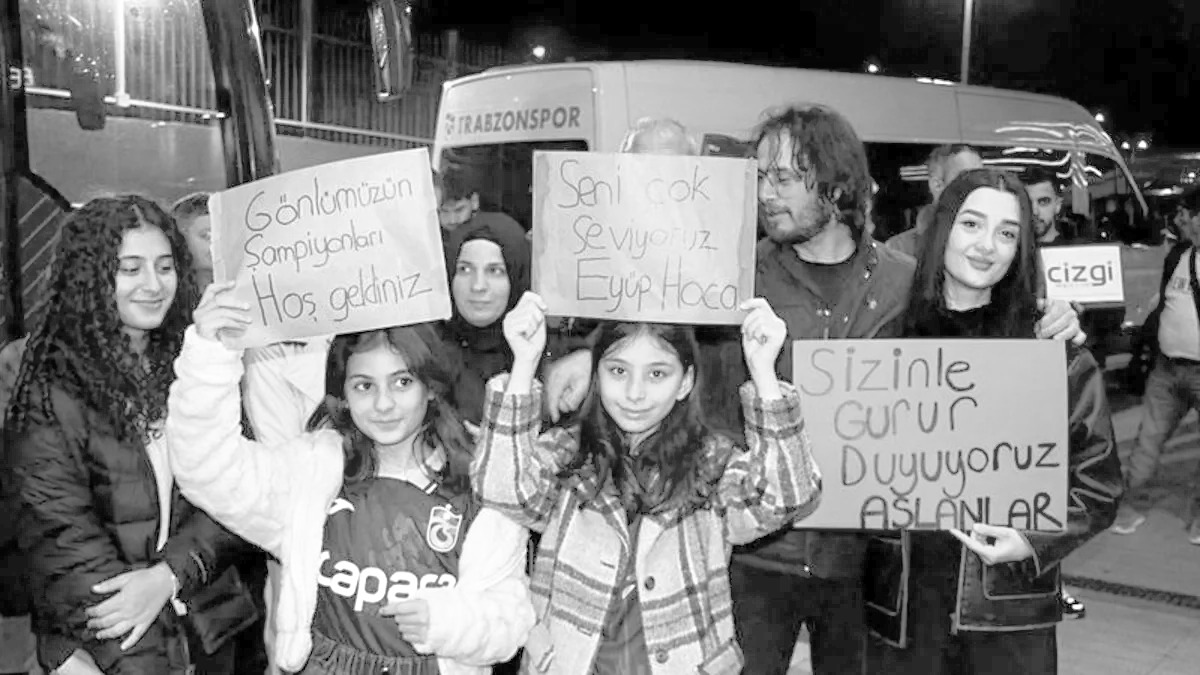 TRABZONSPOR
Gönlümüzün
Şampiyonları
Hoş geldiniz
Seni çok
Seviyoruz
Eyüp Hoca
cizgi
Sizinle
Gurur
Duyuyoruz
AŞLANLAR
Papara
33